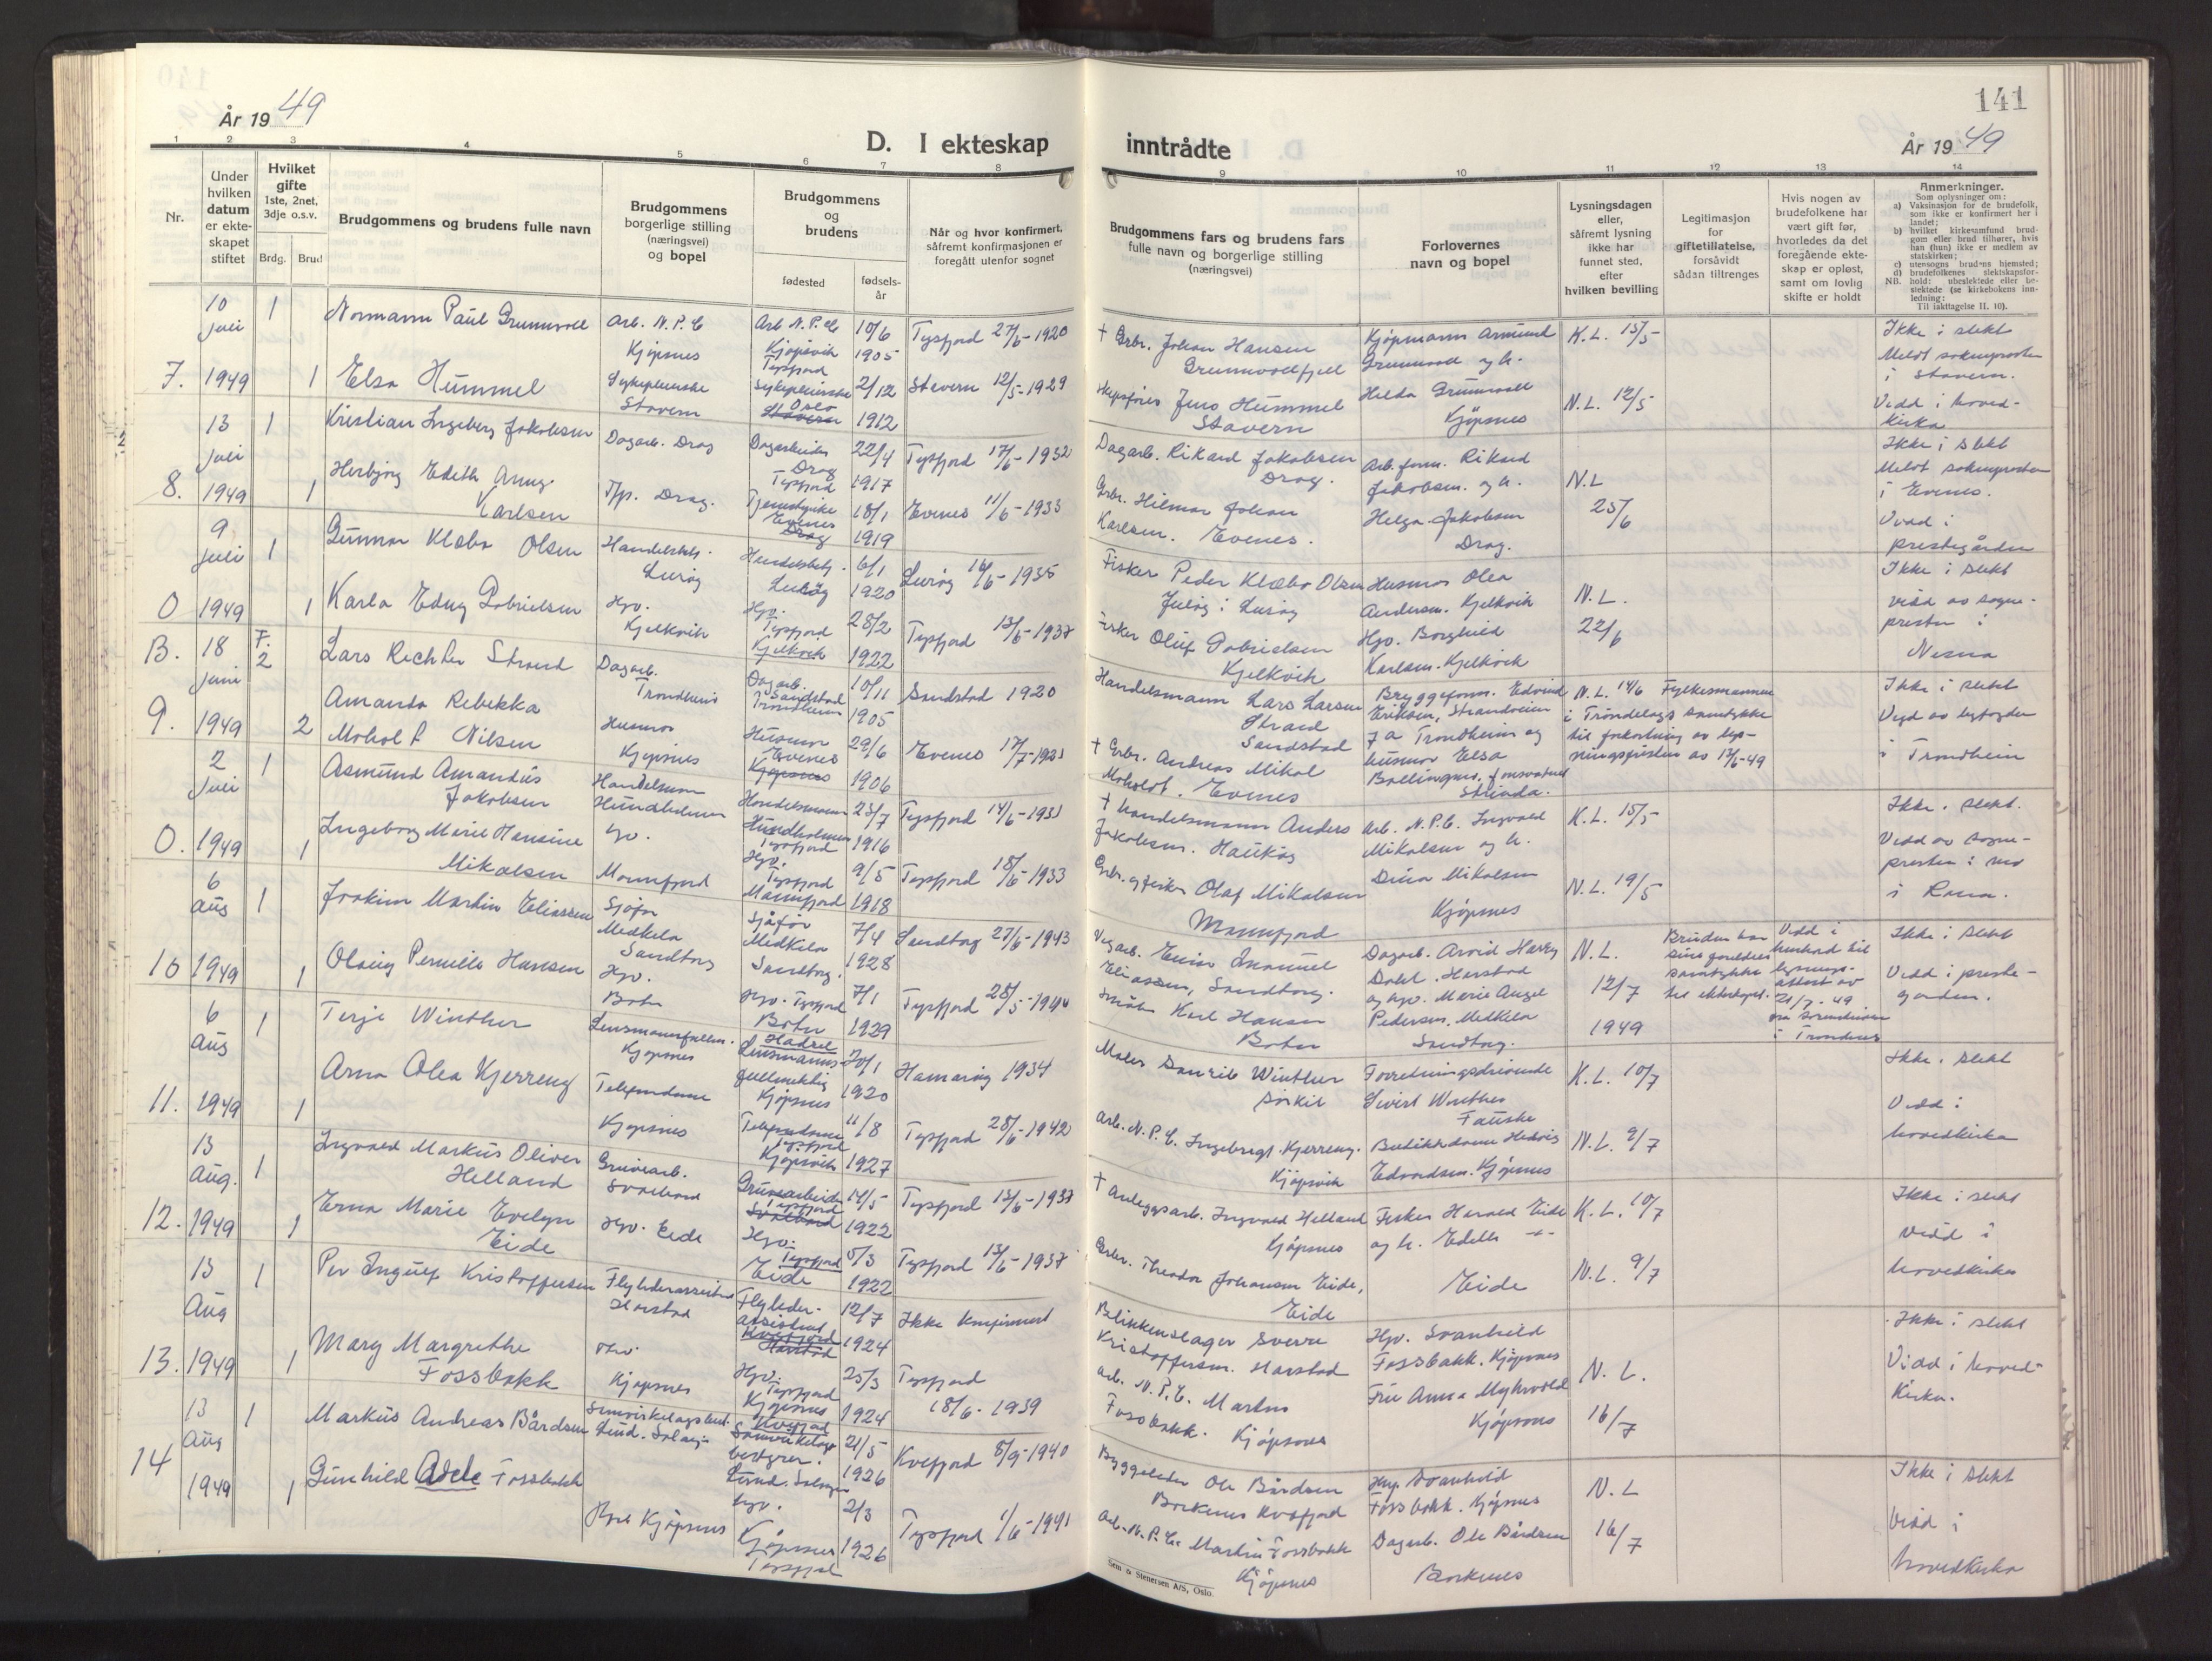 År 1949
D. I ekteskap
1 2 3 4 5 6 7 8
Nr.
Under hvilken datum er ekteskapet stiftet
Hvilket gifte 1ste, 2net, 3dje o.s.v.
Brdg. Brud
Brudgommens og brudens fulle navn
Brudgommens borgerlige stilling (næringsvei) og bopel
Brudgommens og brudens
fødested
fødsels-år
Når og hvor konfirmert, såfremt konfirmasjonen er foregått utenfor sognet
10 juli 1 Normann Paul Grunnvoll Arb. N.P.C Kjøpsnes Arb N.P.C. Kjøpsvik Tysfjord 10/6 1905 Tysfjord 27/6-1920
7. 1949 1 Elsa Hummel Sykepleierske Stavern Sykepleierske Oslo Stavern 2/12 1912 Stavern 12/5-1929
13 juli 1 Kristian Ingeberg Jakobsen Dagarb. Drag Dagarbeider Drag Tysfjord 22/4 1917 Tysfjord 17/6-1932
8. 1949 1 Herbjørg Edeth Anny Karlsen Tjp. Drag. Tjenestpike Evenes Drag 18/1 1919 Evenes 11/6-1933
9 juli 1 Gunnar Klæbo Olsen Handelsbetj. Lurøy Handelsbetj. Lurøy 6/1 1920 Lurøy 16/6-1935
0 1949 1 Karla Edny Gabrielsen Hjv. Kjelkvik Hjv. Tysfjord Kjelkvik 28/2 1922 Tysfjord 13/6-1937
B. 18 juni F. 2 Lars Richter Strand Dagarb. Trondheim Dagarb. Sandstad Trondheim 10/11 1905 Sandstad 1920
9. 1949 2 Amanda Rebekka Moholdt Nilsen Husmor Kjøpsnes Husmor Evenes Kjøpsnes 29/6 1906 Evenes 17/7-1921
2 juli 1 Asmund Amandus Jakobsen Handelsmann Hundholmen Handelsmann Hundholmen Tysfjord 23/7 1916 Tysfjord 14/6-1931
0. 1949 1 Ingeborg Marie Hansine Mikalsen hjv. Mannfjord Hjv. Tysfjord Mannfjord 9/5 1918 Tysfjord 18/6-1933
6 aug 1 Joakim Martin Eliassen Sjåfør Medkila Sandtorg Sjåfør Medkila Sandtorg. 7/4 1928 Sandtorg 27/6-1943
10 1949 1 Olaug Pernille Hansen Hjv. Botn Hjv. Tysfjord Botn 7/1 1929 Tysfjord 28/5-1944
6 aug 1 Terje Winther Lensmannsfullm. Kjøpsnes Hadsel Lensmanns-fullmektig Kjøpsnes 20/1 1920 Hamarøy 1934
11. 1949 1 Arna Olea Kjerreng Telefondame Kjøpsnes Telefondame Tysfjord Kjøpsvik 11/8 1927 Tysfjord 28/6-1942
13 Aug. 1 Ingvald Markus Oliver Helland Gruvearb. Svalbard Gruvearbeider Tysfjord Svalbard 14/5 1922 Tysfjord 13/6-1937
12. 1949 1 Erna Marie Evelyn Eide Hjv. Eide Hjv. Tysfjord Eide 5/3 1922 Tysfjord 13/6-1937
13 Aug 1 Per Ingulf Kristoffersen Flylederassistent Harstad Flyleder-assistent Kvæfjord Harstad 12/7 1924 Ikke konfirmert
13. 1949 1 Mary Margrethe Fossbakk Hjv. Kjøpsnes Hjv. Tysfjord Kjøpsnes 25/3 1924 Tysfjord 18/6-1939
13 Aug 1 Markus Andreas Bårdsen Kvæfjord 21/5 1926 Kvefjord 8/9-1940
14 1949 1 Gunhild Adele Fossbakk Hjv. Kjøpsnes hjv. Kjøpsnes Tysfjord 2/3 1926 Tysfjord 1/6-1941
141
inntrådte
År 1949
9 10 11 12 13 14
Brudgommens fars og brudens fars fulle navn og borgerlige stilling (næringsvei)
Forlovernes navn og bopel
Lysningsdagen eller, såfremt lysning ikke har funnet sted, efter hvilken bevilling
Legitimasjon for giftetillatelse, forsåvidt sådan tiltrenges
Hvis nogen av brudefolkene har vært gift før, hvorledes da det foregående ekteskap er opløst, samt om lovlig skifte er holdt
Anmerkninger.
Som oplysninger om:
a) Vaksinasjon for de brudefolk, som ikke er konfirmert her i landet;
b) hvilket kirkesamfund brudgom eller brud tilhører, hvis han (hun) ikke er medlem av statskirken;
c) utensogns brudens hjemsted;
d) brudefolkenes slektskapsforhold: ubeslektede eller beslektede (se kirkebokens innledning:
NB. Til iakttagelse II. 10).
† Grbr. Johan Hansen Grunnvollfjell Kjøpmann Armund Grunnvoll og h. K.L. 15/5 Ikke i slekt Meldt sokneprosten i Stavern.
Skipsfører Jens Hummel Stavern Helda Grunnvoll Kjøpsnes N.L. 12/5 Vidd i hoved-kirka
Dagarb. Rikard Jakobsen Drag. Arb.form. Rikard Jakobsen og h. N.L Ikke i slekt Meldt sokneprosten i Evenes.
Grbr. Hilmar Johan Karlsen. Evenes. Helga Jakobsen Drag. 25/6 Viad i prestegården
Fisker Peder Klæbo Olsen Husmor Olea Andersen. Kjelkvik N.L. Ikke i slekt
Fisker Oluf Gabrielsen Kjelkvik Hjv. Borghild Karlsen. Kjelkvik 22/6 vidd av sogne-presten i Nesna
Handelsmann Lars Larsen Strand Sandstad Bryggeform. Edvind Eriksen, Strandveien 7a Trondheim og N.L. 14/6 i Trøndelag Fylkesmannens samtykke til forkortning av lys-ningsfristen av 13/6-49 Ikke i slekt Vigd av byfogden i Trondheim
† Grbr. Andreas Mikal Moholdt. Evenes husmor Elsa Strinda.
† Handelsmann Anders Jakobsen. Haukøy Arb. N.P.C. Ingvald Mikalsen og h. K.L. 15/5 Ikke i slekt.
Grbr. og fisker Olaf Mikalsen Mannfjord Dina Mikalsen Kjøpsnes N.L. 19/5 Vidd av sogne-presten i Mo i Rana.
Vegarb. Einar Emanuel Eliassen, Sandtorg. Dagarb. Arvid Harry Dahl. Harstad N.L. Bruden har sine foreldres samtykke til ekteskapet. Vidd i henhold til lysnings-attest av 21/7-49 fra soknepresten i Trondenes Ikke i slekt
Småbr. Karl Hansen Botn og hjv. Marie Angel Pedersen. Medkila Sandtorg. 12/7 1949 Vidd i preste-gården.
Maler Sauril Winther Sørkil Forretningsdrivende Sivert Winther Fauske K.L. 10/7 Ikke i slekt
Arb. N.P.C. Ingebregt. Kjerreng. Kjøpsvik Butikkdame Hedvig Edvardsen. Kjøpsnes N.L. 9/7 Vidd i hovedkirka
† Anleggsarb. Ingvald Helland Kjøpsnes Fisker Harald Eide og h. Edelle -"- K.L. 10/7 Ikke i slekt
Grbr. Theodor Johansen Eide, Eide Eide N.L. 9/7 Vidd i hovedkirka
Blikkenslager Sverre Kristoffersen. Harstad Hjv. Svanhild Fossbakk. Kjøpsnes N.L. Ikke i slekt
Arb. N.P.C. Martin Fossbakk. Kjøpsnes Fru Anna Myhrvold Kjøpsnes 16/7 Vidd i hoved-kirka.
Byggeleder Ole Bårdsen Borkenes Kvæfjord Hjv. Svanhild Fossbakk. Kjøpsnes N.L Ikke i slekt
Arb. N.P.C. Martin Fossbakk Kjøpsnes Dagarb. Ole Bårdsen Borkenes 16/7 Vidd i hovedkirka
Sem & Stenersen A/S, Oslo.